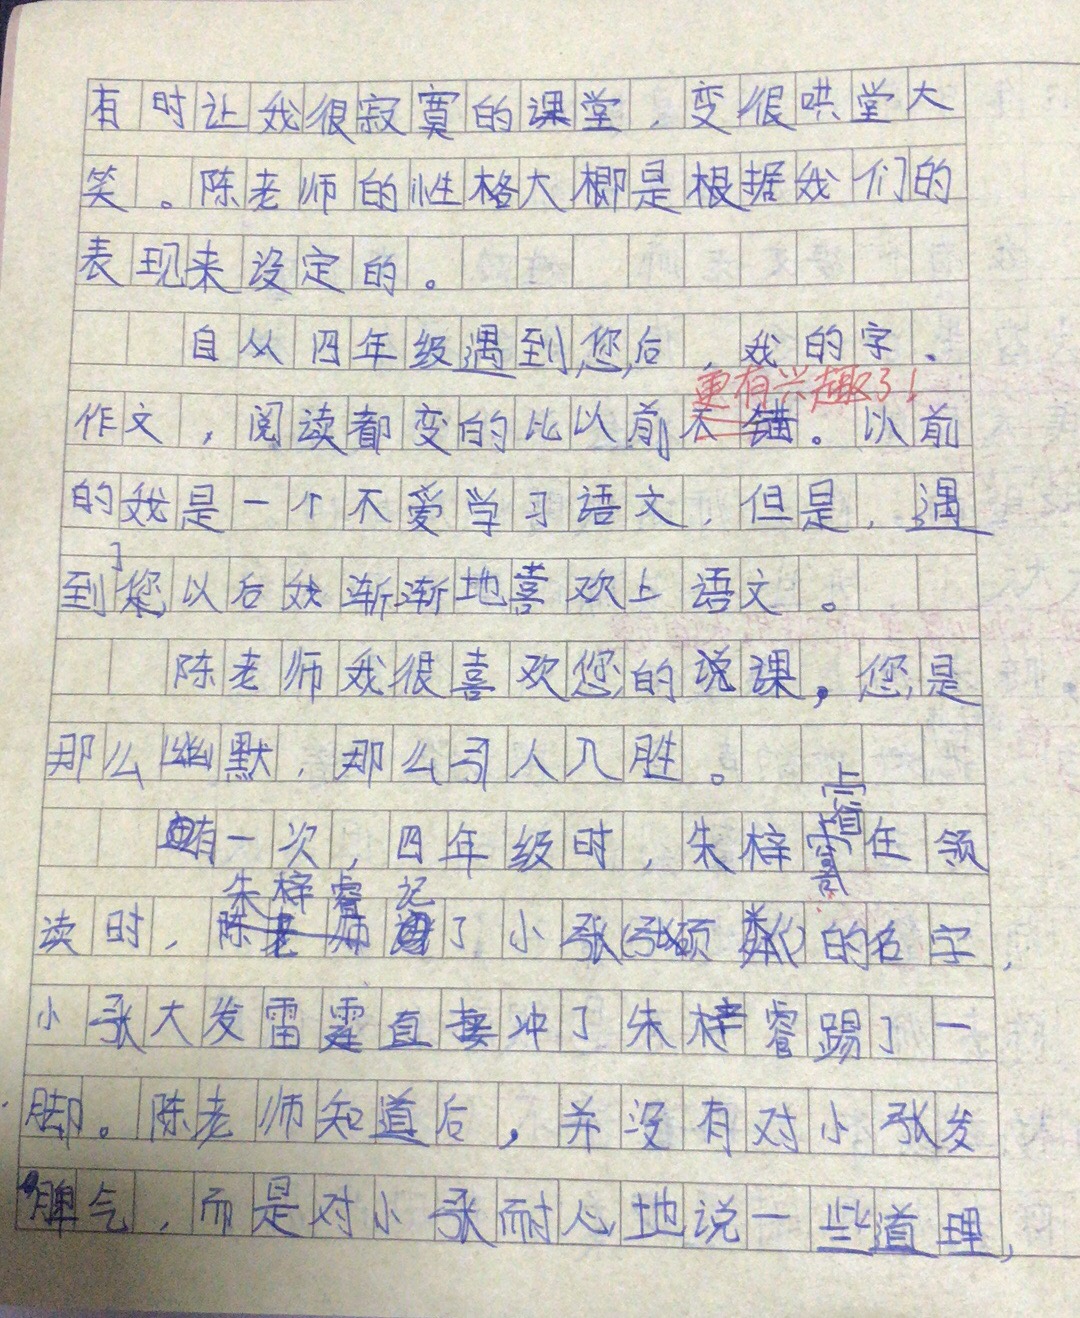 有时让我很寂寞的课堂，变很哄堂大
笑。陈老师的性格大概是根据我们的
表现来设定的。
自从四年级遇到您后，我的字、
更有兴趣了！
作文，阅读都变的比以前不错。以前
的我是一个不爱学习语文，但是，遇
到了您以后我渐渐地喜欢上语文。
陈老师我很喜欢您的说课，您是
那么幽默，那么引人入胜。
有一次，四年级时，朱梓睿在领
朱梓睿 记
读时，陈老师了小张(张硕粼)的名字，
小张大发雷霆直接冲了朱梓睿踢了一
脚。陈老师知道后，并没有对小张发
脾气，而是对小张耐心地说一些道理，